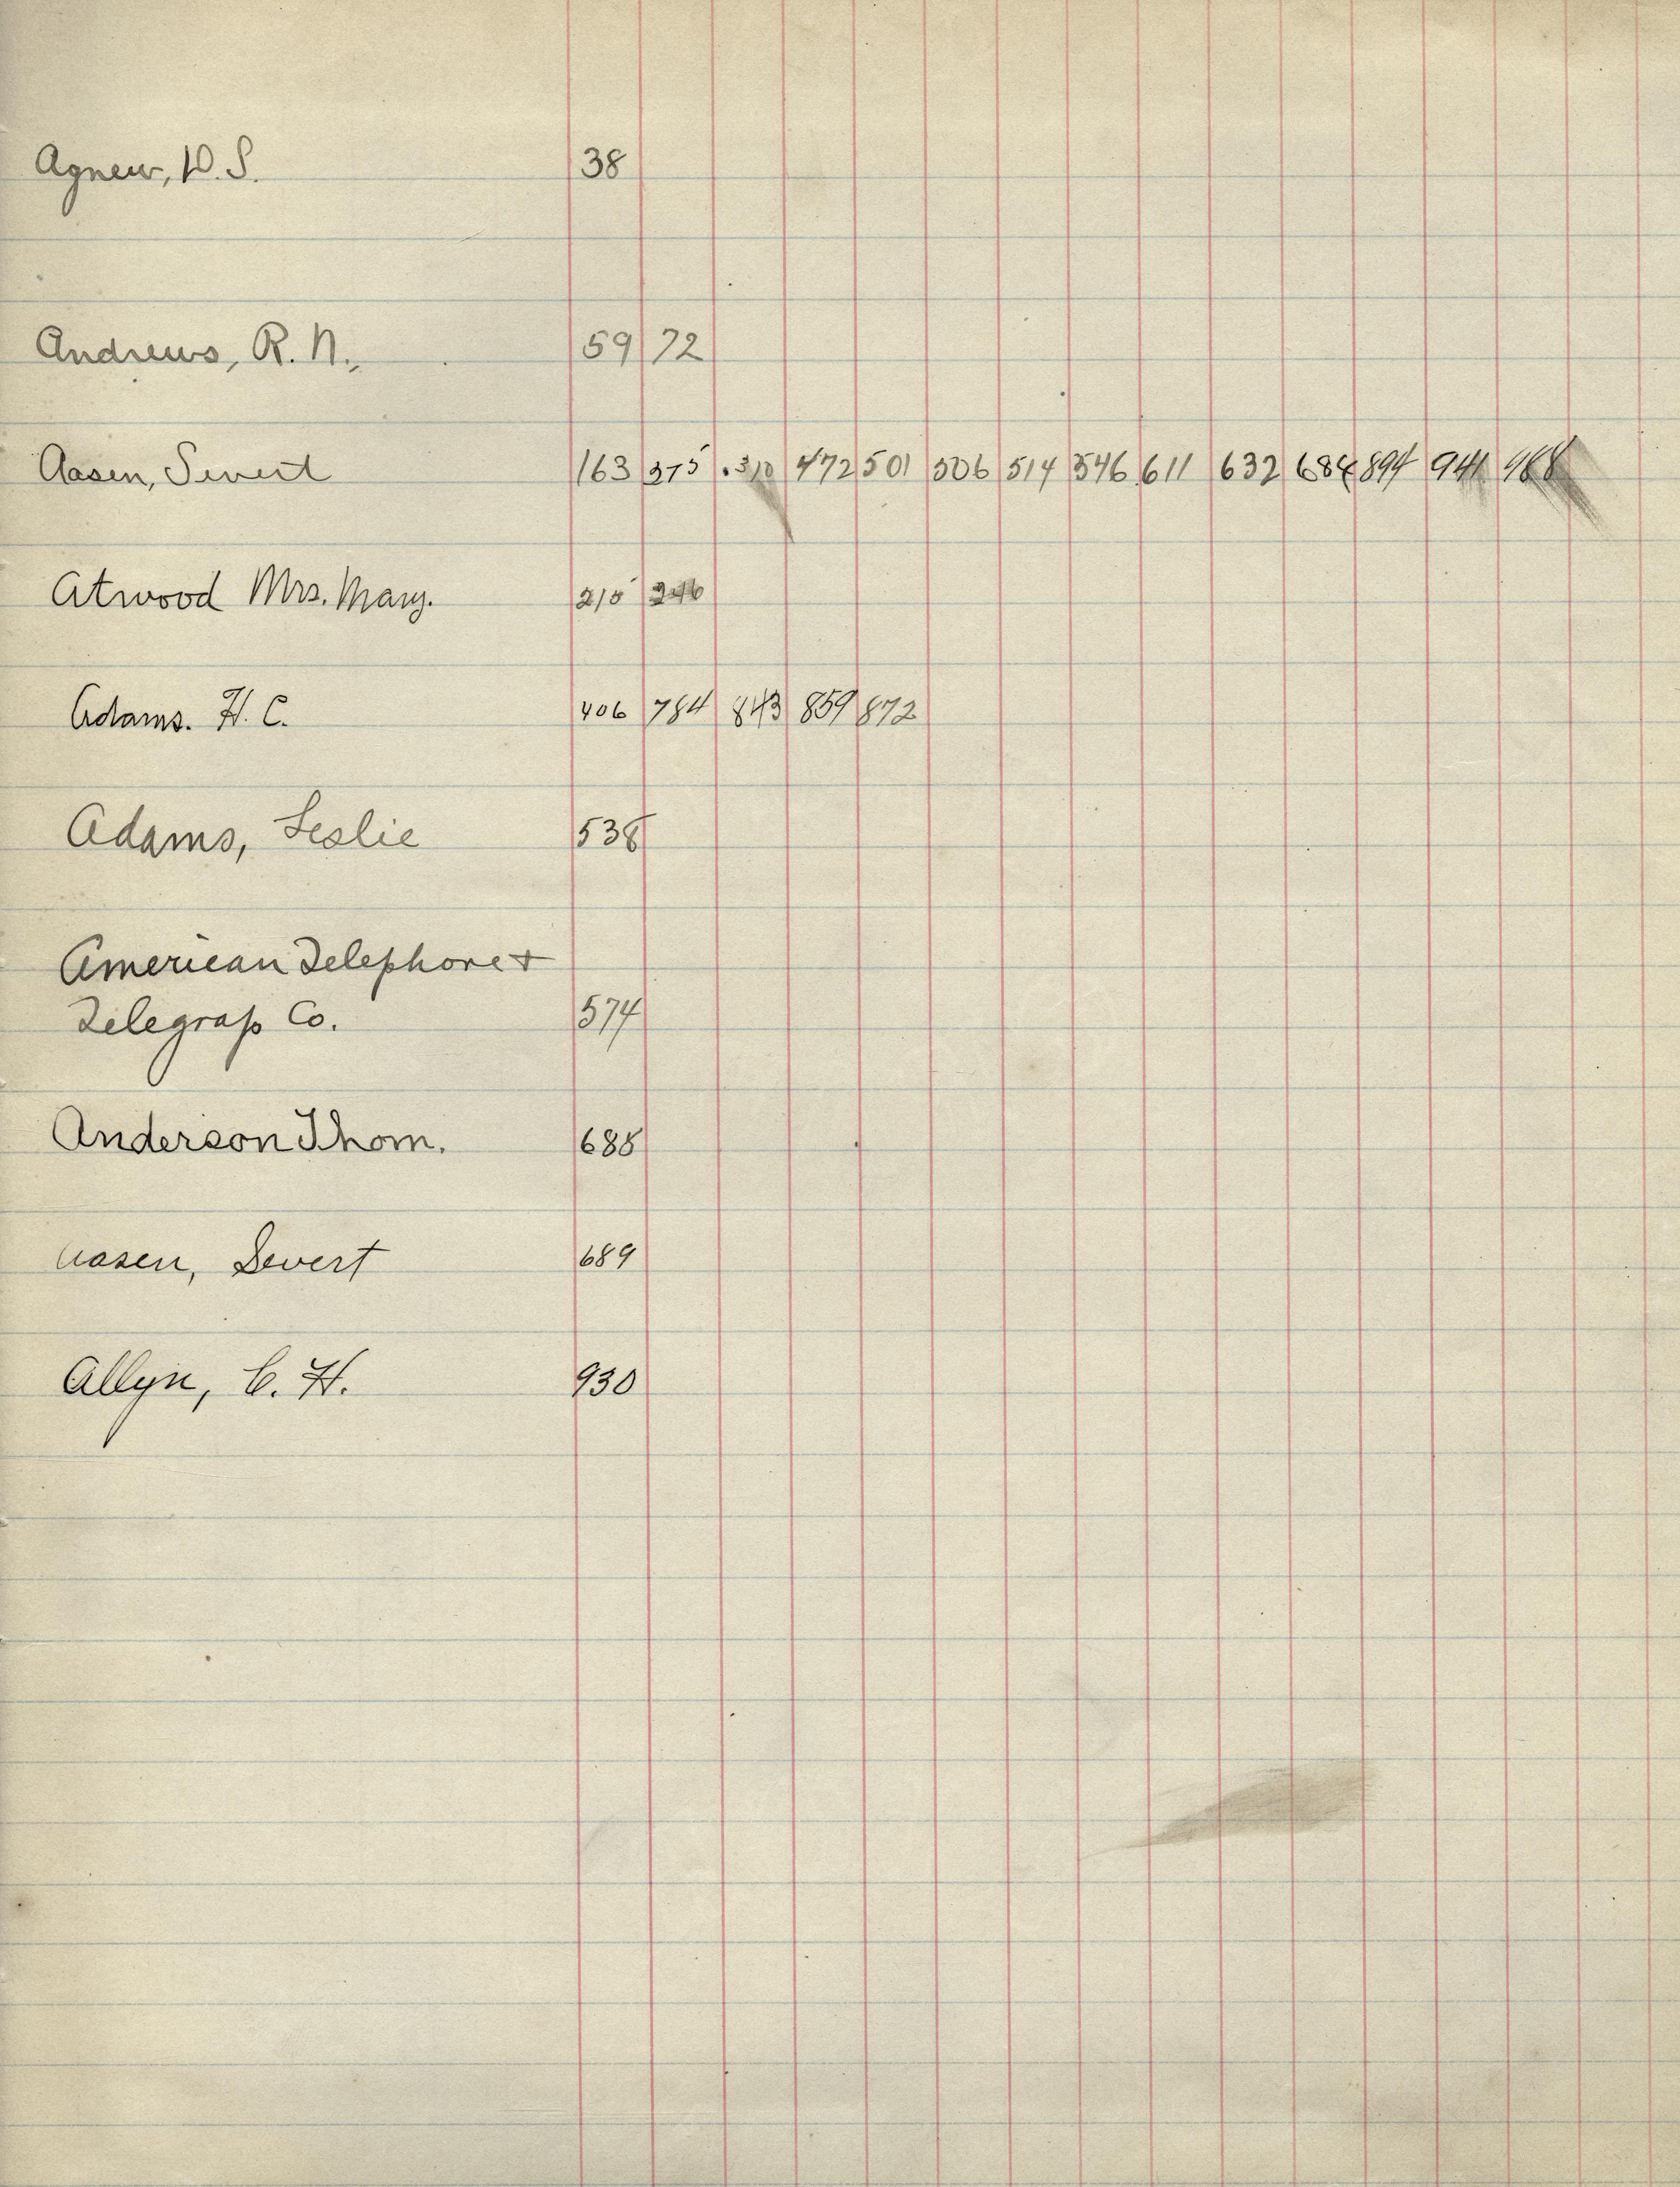 Agnew, D. S. 38
Andrews, R. N., 59 72
Aasen, Sivert 163 275 310 472 501 506 514 546 611 632 684 894 941 988
Atwood Mrs. Mary. 215 246
Adams. H. C. 406 784 843 859 872
Adams, Leslie 538
American Telephone +
Telegrap Co. 574
Anderson Thom. 688
Aasen, Severt 689
Allyn, C. H. 930